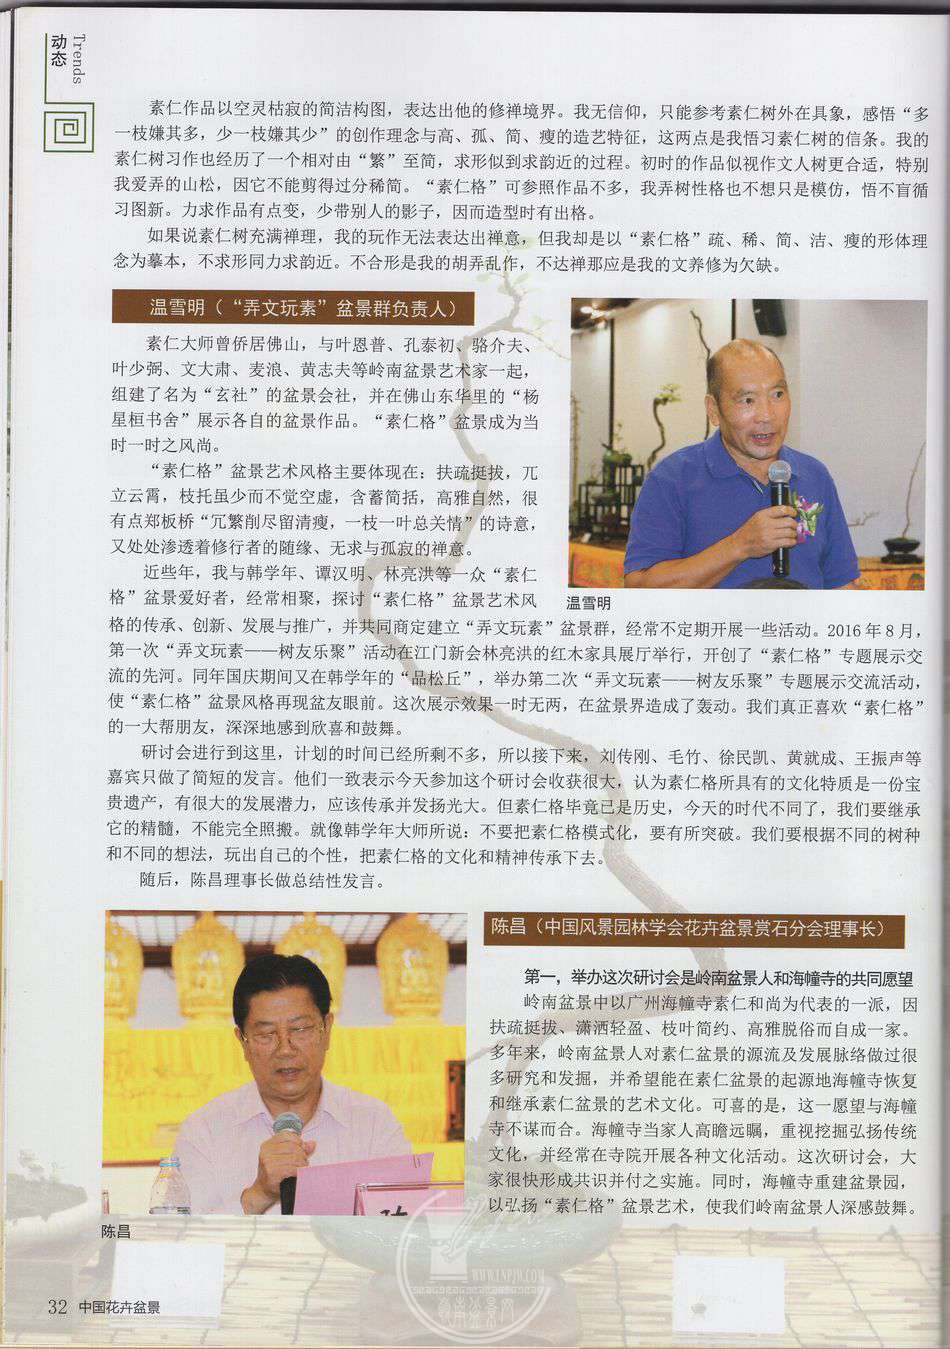 Trends
动态
素仁作品以空灵枯寂的简洁构图，表达出他的修禅境界。我无信仰，只能参考素仁树外在具象，感悟“多
一枝嫌其多，少一枝嫌其少”的创作理念与高、孤、简、瘦的造艺特征，这两点是我悟习素仁树的信条。我的
素仁树习作也经历了一个相对由“繁”至简，求形似到求韵近的过程。初时的作品似视作文人树更合适，特别
我爱弄的山松，因它不能剪得过分稀简。“素仁格”可参照作品不多，我弄树性格也不想只是模仿，悟不盲循
习图新。力求作品有点变，少带别人的影子，因而造型时有出格。
如果说素仁树充满禅理，我的玩作无法表达出禅意，但我却是以“素仁格”疏、稀、简、洁、瘦的形体理
念为摹本，不求形同力求韵近。不合形是我的胡弄乱作，不达禅那应是我的文养修为欠缺。
温雪明（“弄文玩素”盆景群负责人）
素仁大师曾侨居佛山，与叶恩普、孔泰初、骆介夫、
叶少弼、文大肃、麦浪、黄志夫等岭南盆景艺术家一起，
组建了名为“玄社”的盆景会社，并在佛山东华里的“杨
星桓书舍”展示各自的盆景作品。“素仁格”盆景成为当
时一时之风尚。
“素仁格”盆景艺术风格主要体现在：扶疏挺拔，兀
立云霄，枝托虽少而不觉空虚，含蓄简括，高雅自然，很
有点郑板桥“冗繁削尽留清瘦，一枝一叶总关情”的诗意，
又处处渗透着修行者的随缘、无求与孤寂的禅意。
近些年，我与韩学年、谭汉明、林亮洪等一众“素仁
格”盆景爱好者，经常相聚，探讨“素仁格”盆景艺术风
温雪明
格的传承、创新、发展与推广，并共同商定建立“弄文玩素”盆景群，经常不定期开展一些活动。2016 年 8 月，
第一次“弄文玩素——树友乐聚”活动在江门新会林亮洪的红木家具展厅举行，开创了“素仁格”专题展示交
流的先河。同年国庆期间又在韩学年的“品松丘”，举办第二次“弄文玩素——树友乐聚”专题展示交流活动，
使“素仁格”盆景风格再现盆友眼前。这次展示效果一时无两，在盆景界造成了轰动。我们真正喜欢“素仁格”
的一大帮朋友，深深地感到欣喜和鼓舞。
研讨会进行到这里，计划的时间已经所剩不多，所以接下来，刘传刚、毛竹、徐民凯、黄就成、王振声等
嘉宾只做了简短的发言。他们一致表示今天参加这个研讨会收获很大，认为素仁格所具有的文化特质是一份宝
贵遗产，有很大的发展潜力，应该传承并发扬光大。但素仁格毕竟已是历史，今天的时代不同了，我们要继承
它的精髓，不能完全照搬。就像韩学年大师所说：不要把素仁格模式化，要有所突破。我们要根据不同的树种
和不同的想法，玩出自己的个性，把素仁格的文化和精神传承下去。
随后，陈昌理事长做总结性发言。
陈昌
陈昌（中国风景园林学会花卉盆景赏石分会理事长）
第一，举办这次研讨会是岭南盆景人和海幢寺的共同愿望
岭南盆景中以广州海幢寺素仁和尚为代表的一派，因
扶疏挺拔、潇洒轻盈、枝叶简约、高雅脱俗而自成一家。
多年来，岭南盆景人对素仁盆景的源流及发展脉络做过很
多研究和发掘，并希望能在素仁盆景的起源地海幢寺恢复
和继承素仁盆景的艺术文化。可喜的是，这一愿望与海幢
寺不谋而合。海幢寺当家人高瞻远瞩，重视挖掘弘扬传统
文化，并经常在寺院开展各种文化活动。这次研讨会，大
家很快形成共识并付之实施。同时，海幢寺重建盆景园，
以弘扬“素仁格”盆景艺术，使我们岭南盆景人深感鼓舞。
WWW.LNPJW.COM
岭南盆景网
32 中国花卉盆景